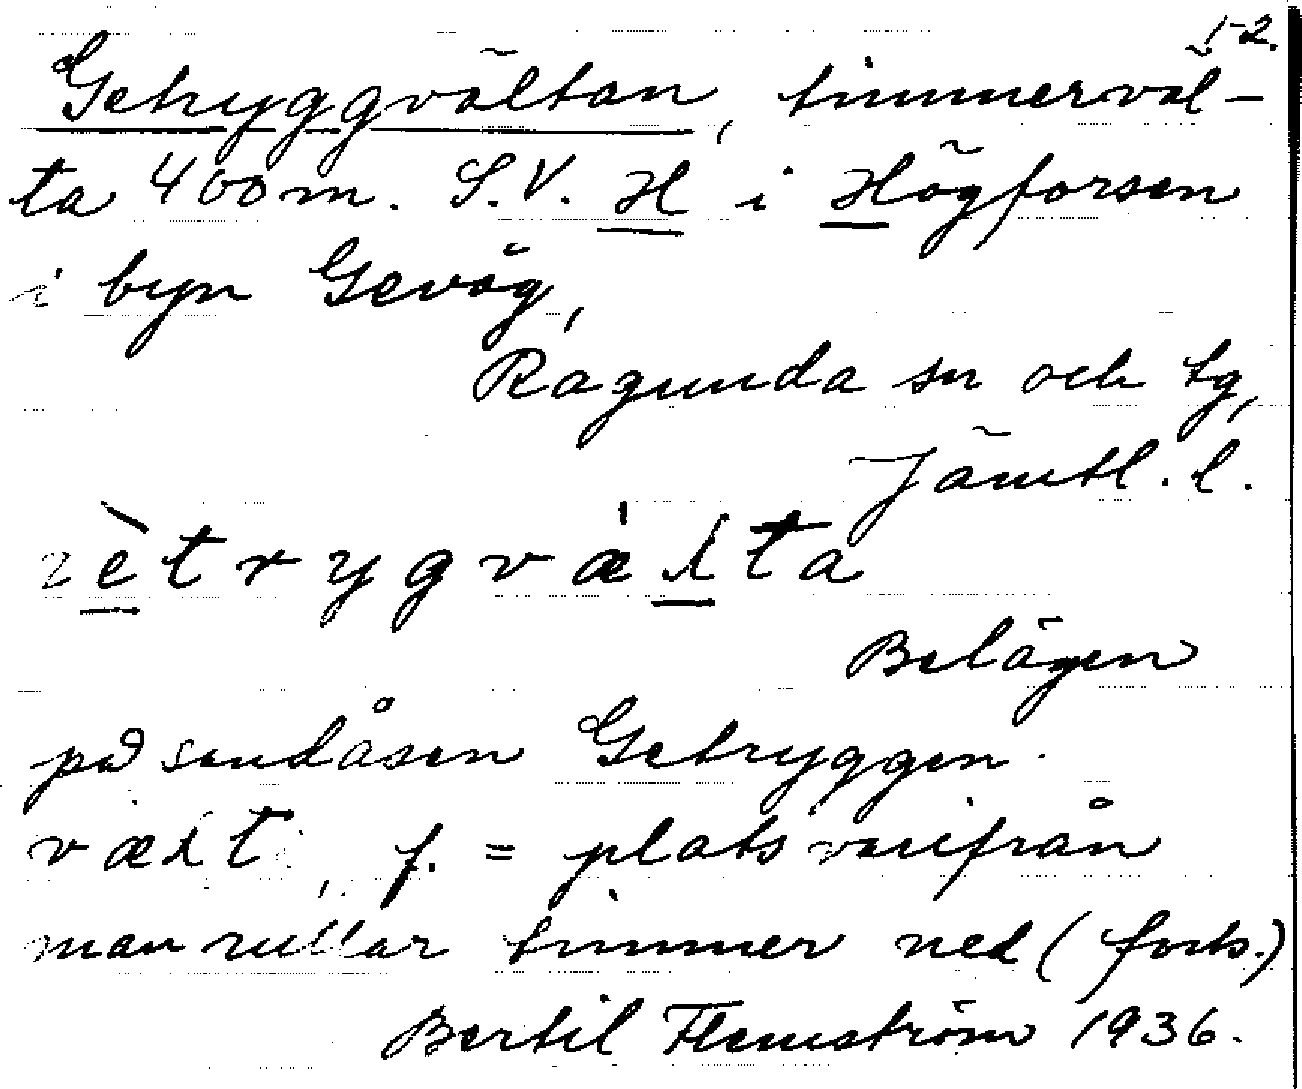 1-2.
Getryggvältan, timmerväl-
ta 400 m. S.V. H i Högforsen
i byn Gevåg,
Ragunda sn och tg,
Jämtl. l.
Belägen
på sandåsen Getryggen.
f. = plats varifrån
man rullar timmer ned (forts.)
Bertil Flemström 1936.